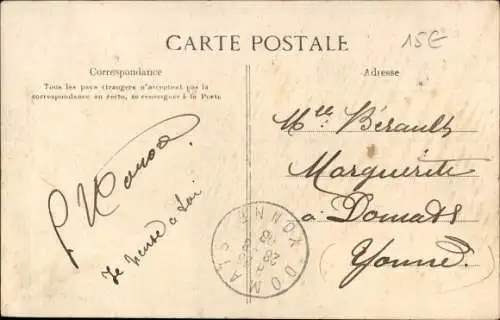 CARTE POSTALE
15€
Correspondance
Tous les pays étrangers n'acceptent pas la
correspondance au recto, se renseigner à la Poste
Adresse
Melle Bérault
Marguerite
à Domats
(Yonne)
Je pense à toi
DOMATS YONNE
28